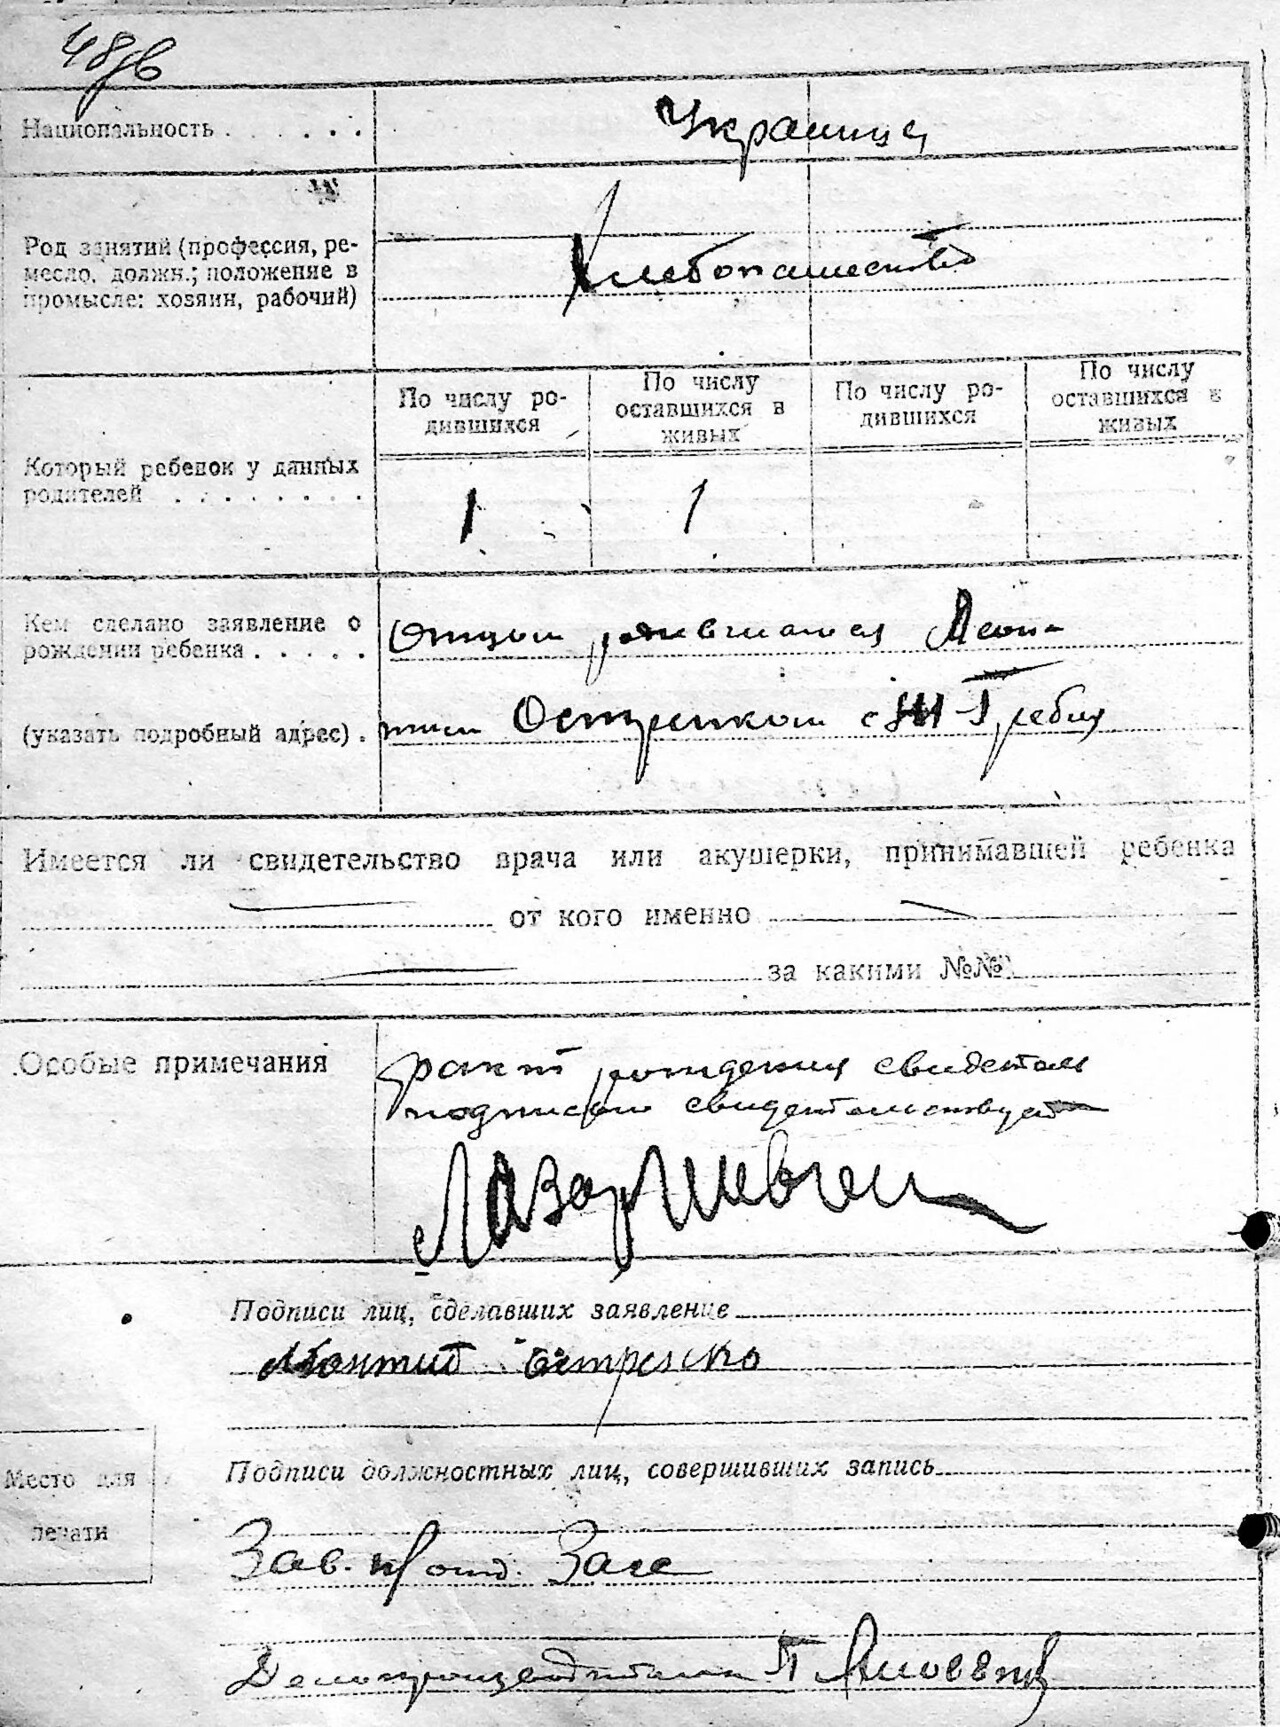 48об
Национальность . . . . . .
Украинцы
Род занятий (профессия, ре-
месло, должн.; положение в
промысле: хозяин, рабочий)
Хлебопашество
По числу ро-
дившихся
По числу
оставшихся в
живых
По числу ро-
дившихся
По числу
оставшихся в
живых
Который ребенок у данных
родителей . . . . . . . .
1 1
Кем сделано заявление о
рождении ребенка . . . . .
(указать подробный адрес) .
Отцом родившагося Леон-
тием Остренком с. Гребля
Имеется ли свидетельство врача или акушерки, принимавшей ребенка
от кого именно
за какими №№
Особые примечания
факт рождения свидетель
подписом свидетельствует
Лазаршевчен
Подписи лиц, сделавших заявление
Леонтий Остренко
Место для
печати
Подписи должностных лиц, совершивших запись
Зав. отд. Загс
Делопроизводитель П